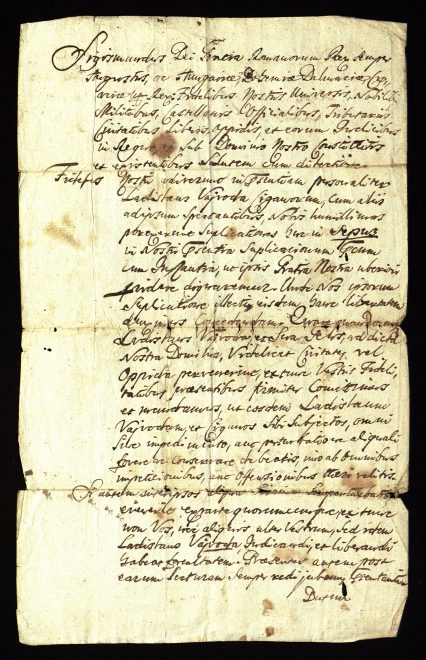 Sigismundus Dei Gratia Romanorum Rex semper
Augustus, ac Hungariae, Dalmaciae,
et Rex; Fidelibus Nostris Universis, Nobilib
Militibus, Castellanis Officialibus, Tributariis
Civitatibus Liberis, Oppidis, et eorum Judicibus
in Regno et sub Dominio Nostro Constitutis
et existentibus Salutem Cum dilectione
Fideles Nostri adierunt in praesentiam personaliter
Ladislaus Vajvoda Ciganorum, cum aliis
ad ipsum spectantibus, Nobis humillimas
porrexerunt Suplicationes huc in Sepus
in Nostri praesentia Suplicationum
cum Instantia, ut ipsis Gratia Nostra uberiori
providere dignaremur. Unde Nos ipsorum
Suplicatione illecti, eisdem hanc libertatem
duximus Concedendam.
Ladislaus Vajvoda, et Sua Gens, ad dicta
Nostra Dominia, Videlicet Civitates, vel
Oppida pervenerint, ex tunc Vestris Fideli-
tatibus praesentibus firmiter Comittimus
et mandamus, ut eosdem Ladislaum
Vajvodam, et Ciganos Sibi Subjectos, omni
Sine impedimento, ac perturbatione aliquali
fovere ac Conservare debeatis, imo ab omnibus
impeticionibus, ac offensionibus velitis.
Si autem inter ipsos
evenerit ex parte quorumcunque, ex tunc
non Vos, nec aliquis alter Vestrum, Sed idem
Ladislaus Vajvoda Judicandi, et liberandi
habeat facultatem. Praesentes autem post
earum Lecturam Semper reddi jubemus Praesentanti
Datum